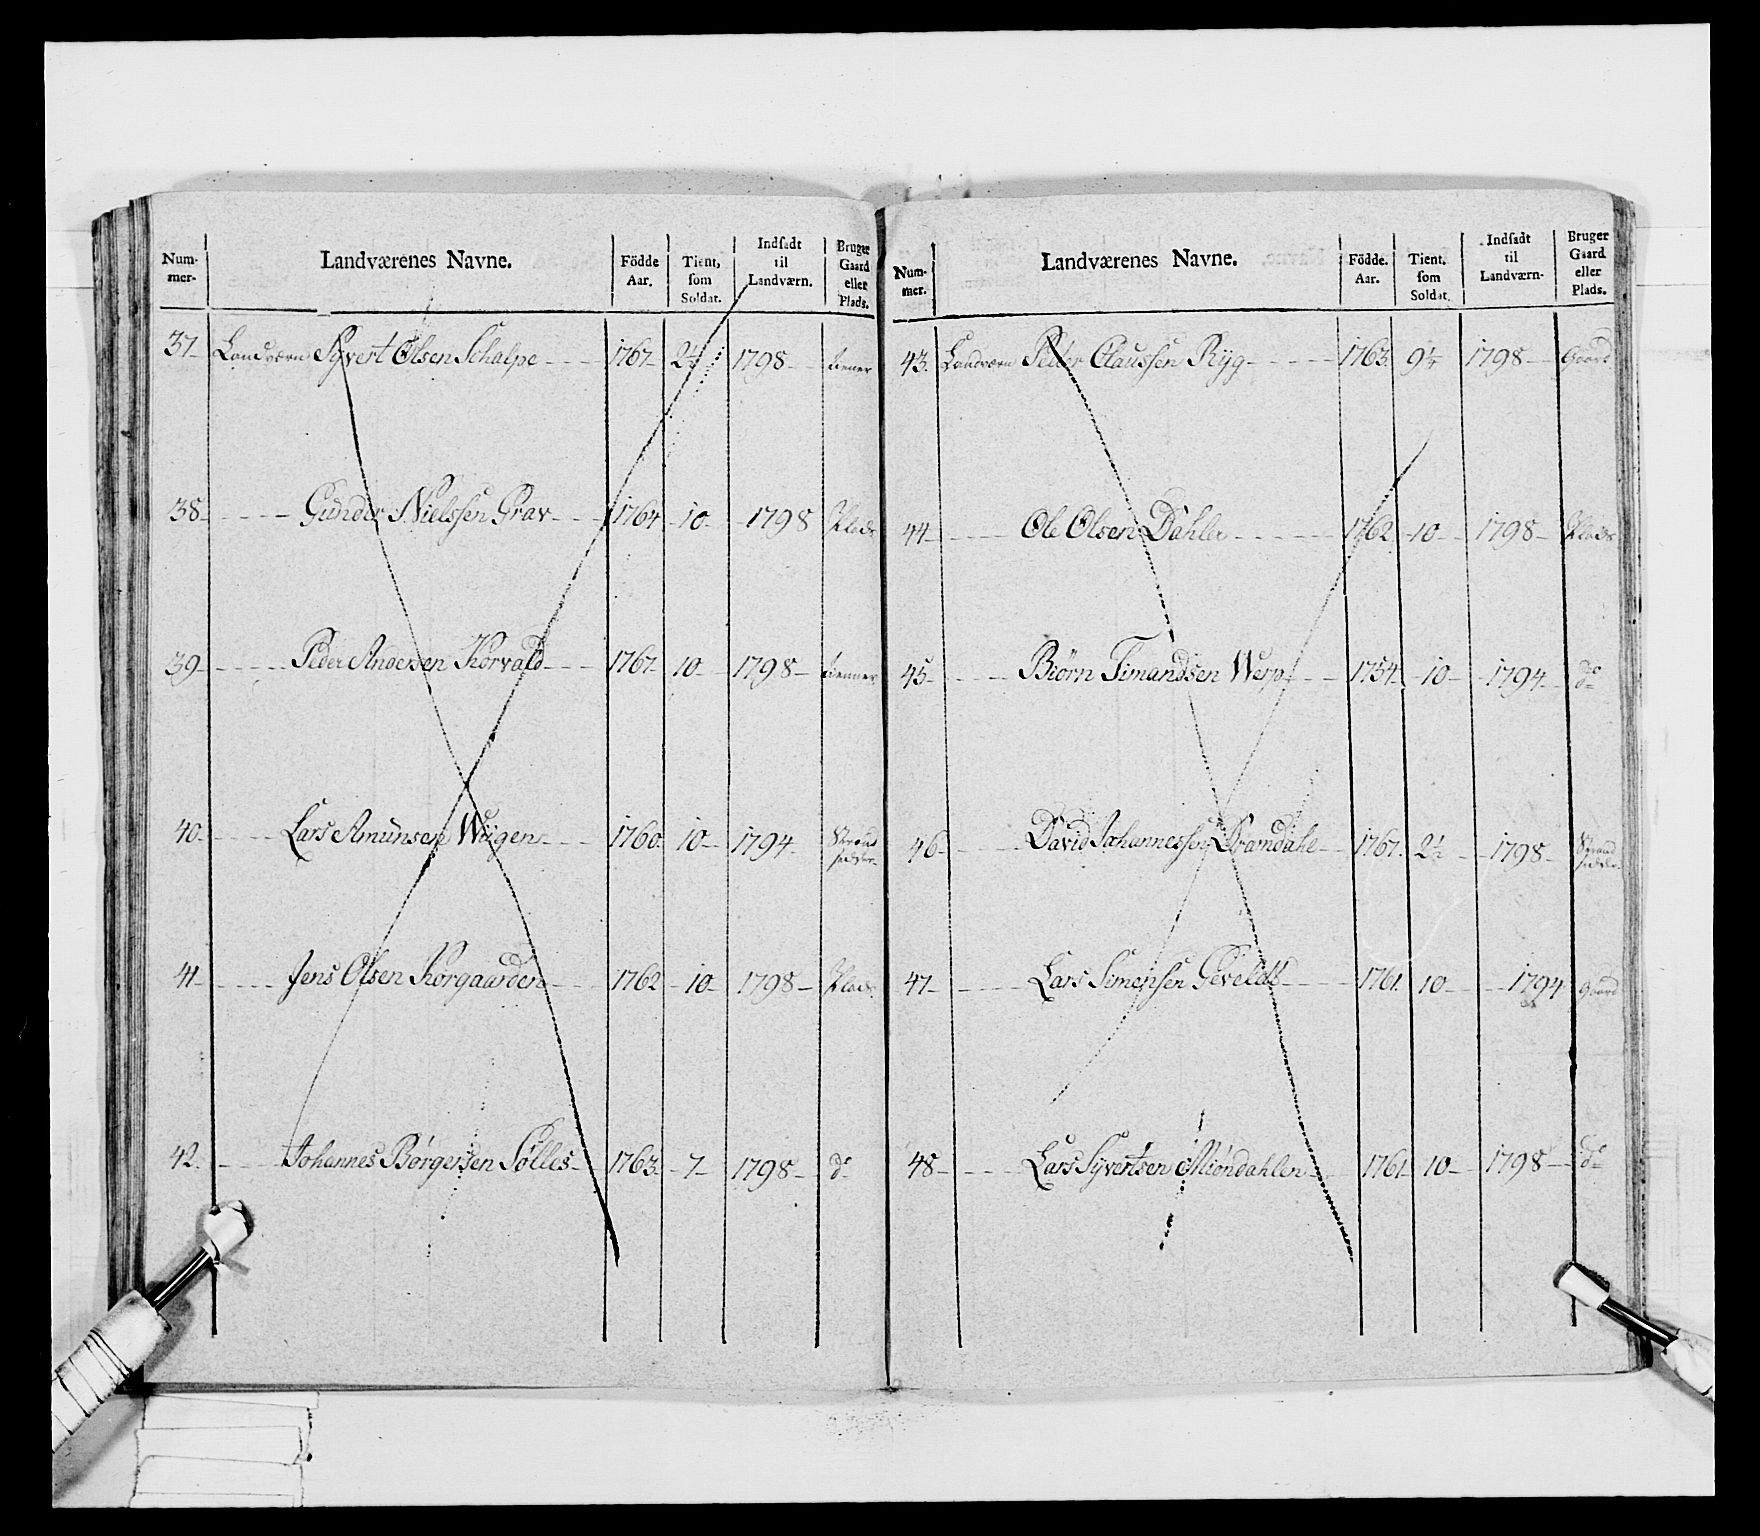 Num-
mer.
Landværenes Navne.
Födde
Aar.
Tient,
som
Soldat.
Indsadt
til
Landværn.
Bruger
Gaard
eller
Plads.
37 Landværn Syvert Olsen Schalpe 1767 2½ 1798 tiener
38 Gunder Nielssen Grav 1764 10 1798 Plads
39 Peder Andersen Korvald 1767 10 1798 tienner
40 Lars Amundsen Wiigen 1760 10 1794 Strand
sidder
41 Jens Olsen Korgaarden 1762 10 1798 Plads
42 Johannes Børgersen Sølles 1763 7 1798 do
Num-
mer.
Landværenes Navne.
Födde.
Aar.
Tient.
som
Soldat.
Indsadt
til
Landværn.
Bruger
Gaard
eller
Plads.
43 Landværn Peder Claussen Ryg 1763 9¼ 1798 Gaard
44 Ole Olsen Dahler 1762 10 1798 Plads
45 Biørn Timandsen Werp 1754 10 1794 do
46 David Johannessen Dramdahl 1767 2½ 1798 Strand
sidder
47 Lars Simensen Geveldt 1761 10 1794 Gaard
48 Lars Syvertsen Miøndahlen 1761 10 1798 do